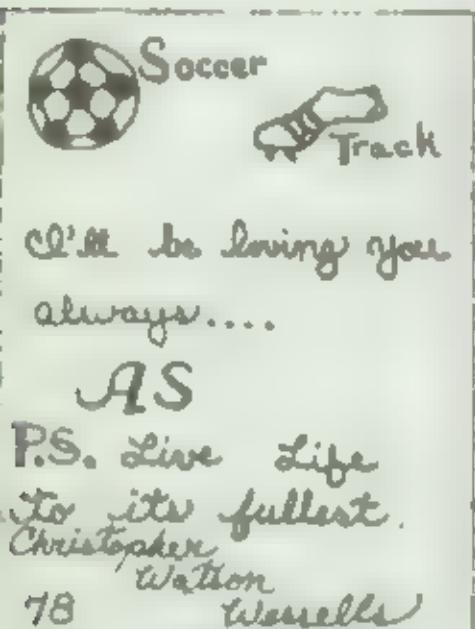 Soccer
Track
I'll be loving you
always....
AS
P.S. Live Life
to its fullest.
Christopher
Watson
78 Wessells